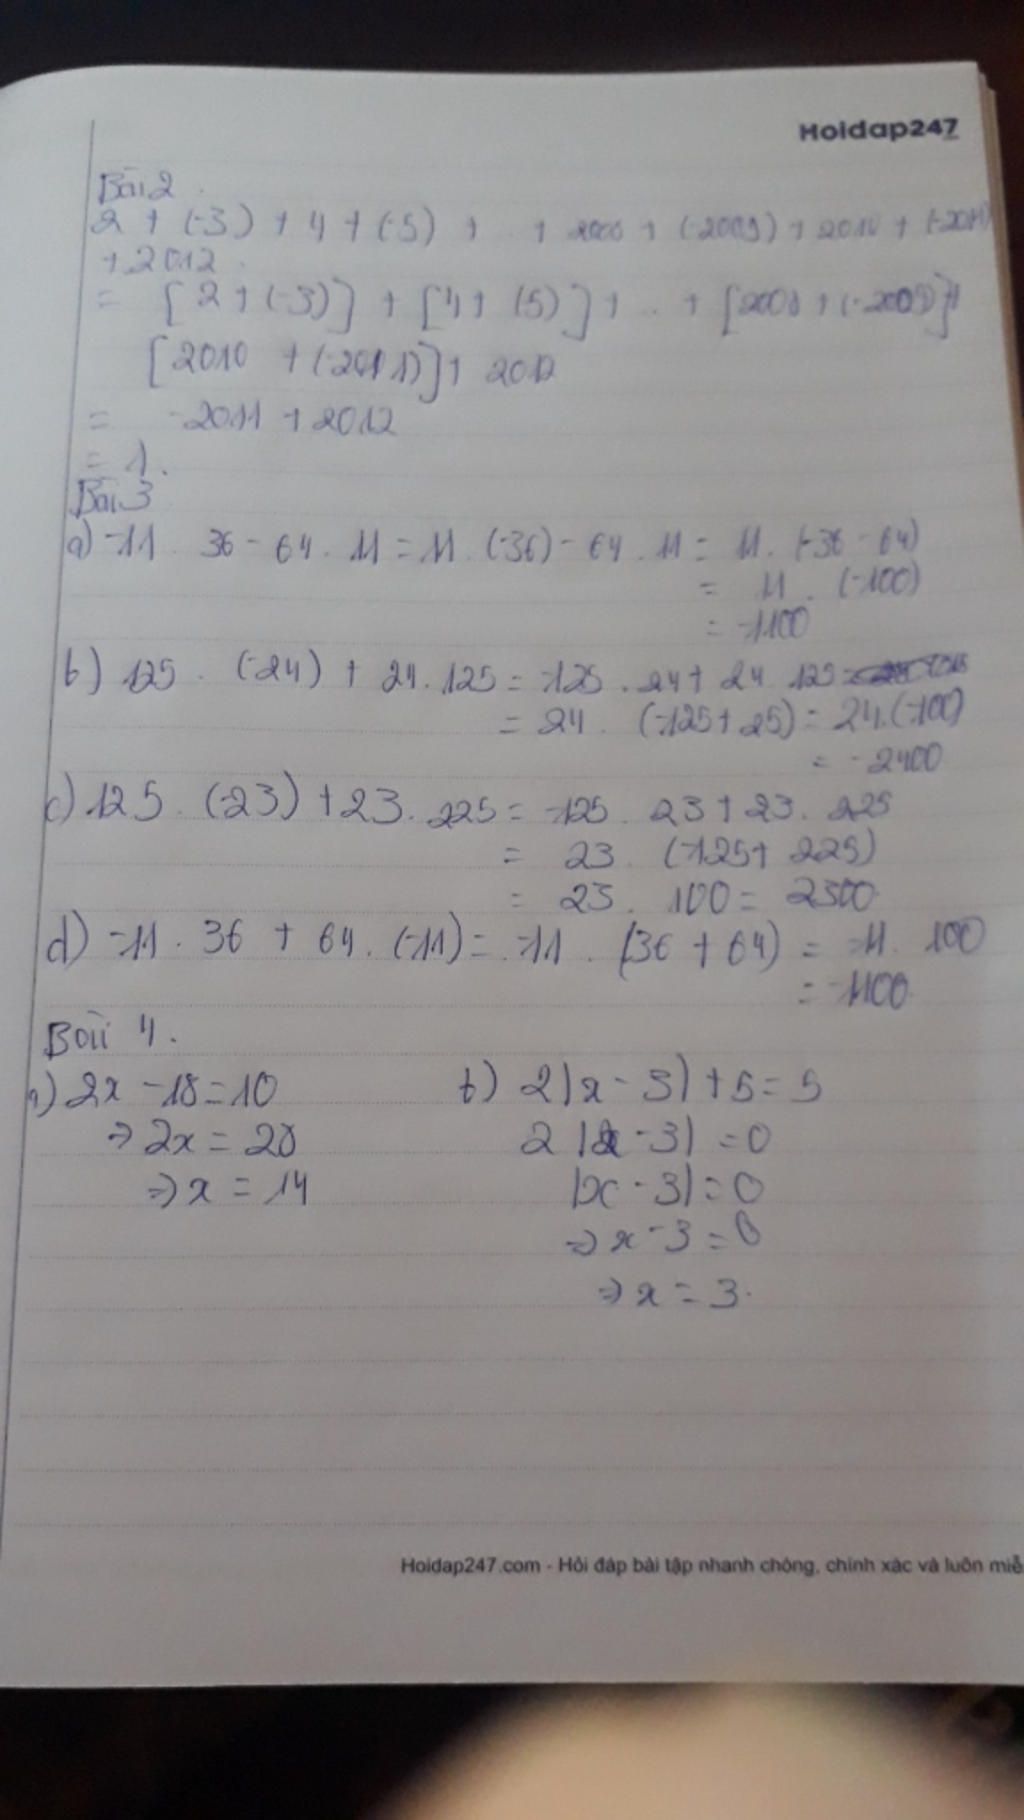 Hoidap247
Bài 2
2 + (-3) + 4 + (-5) + .. + 2008 + (-2009) + 2010 + (-2011)
+ 2012
= [2 + (-3)] + [4 + (5)] + .. + [2008 + (-2009)] +
[2010 + (-2011)] + 2012
= -2011 + 2012
= 1.
Bài 3
a) -11 . 36 - 64 . 11 = 11 . (-36) - 64 . 11 = 11 . (-36 - 64)
= 11 . (-100)
= -1100
b) 125 . (-24) + 24 . 125 = -125 . 24 + 24 . 125
= 24 . (-125 + 25) = 24.(-100)
= -2400
c) 125 . (-23) + 23 . 225 = -125 . 23 + 23 . 225
= 23 . (-125 + 225)
= 23 . 100 = 2300
d) -11 . 36 + 64 . (-11) = -11 . (36 + 64) = -11 . 100
= -1100
Bài 4.
a) 2x - 18 = 10
=> 2x = 28
=> x = 14
b) 2|x - 3| + 5 = 5
2|x - 3| = 0
|x - 3| = 0
=> x - 3 = 0
=> x = 3.
Hoidap247.com - Hỏi đáp bài tập nhanh chóng, chính xác và luôn miễ